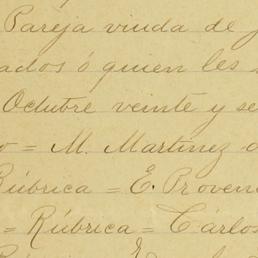 Pareja viuda de
ados ó quien les
Octubre veinte y se
o = M. Martinez
Rúbrica = E. Proven
= Rúbrica = Cárlos